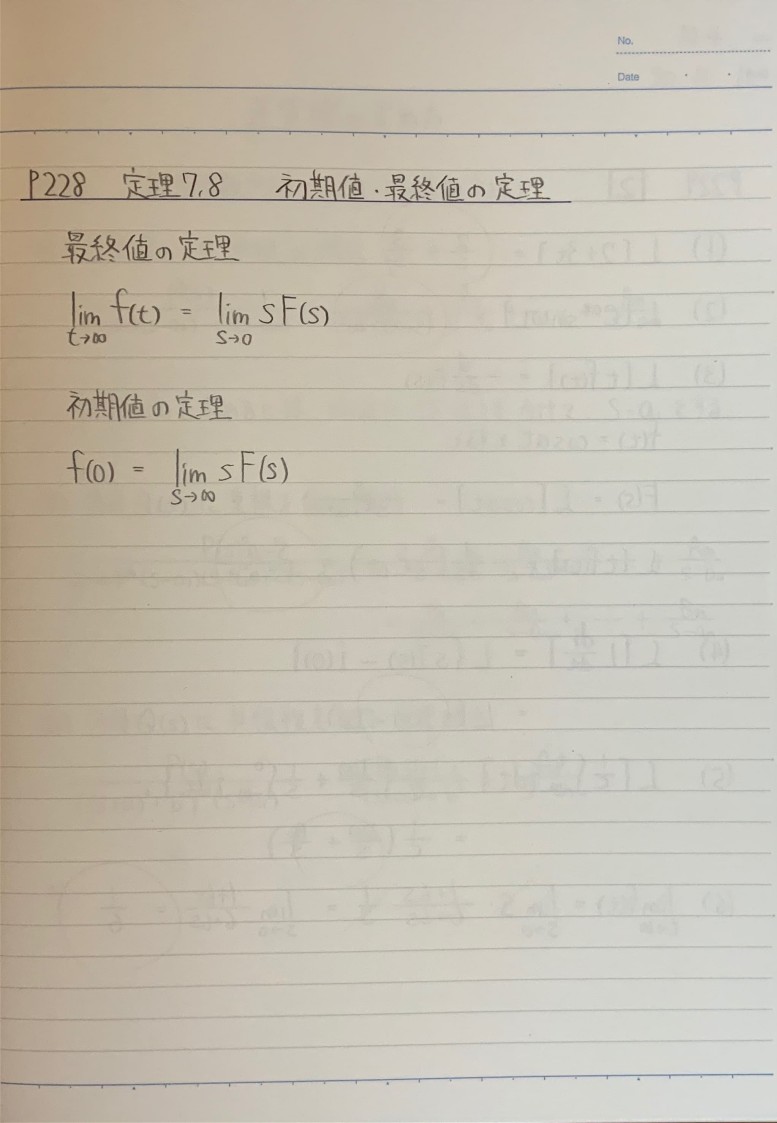 No.
Date
P228 定理7,8 初期値・最終値の定理
最終値の定理
lim f(t) = lim sF(s)
t→∞ s→0
初期値の定理
f(0) = lim sF(s)
s→∞